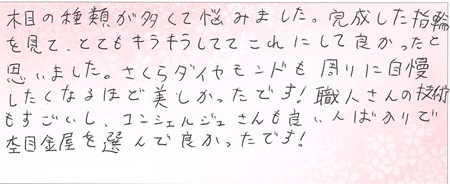 木目の種類が多くて悩みました。完成した指輪
を見て、とてもキラキラしててこれにして良かったと
思いました。さくらダイヤモンドも周りに自慢
したくなるほど美しかったです!職人さんの技術
もすごいし、コンシェルジュさんも良い人ばかりで
杢目金屋を選んで良かったです!